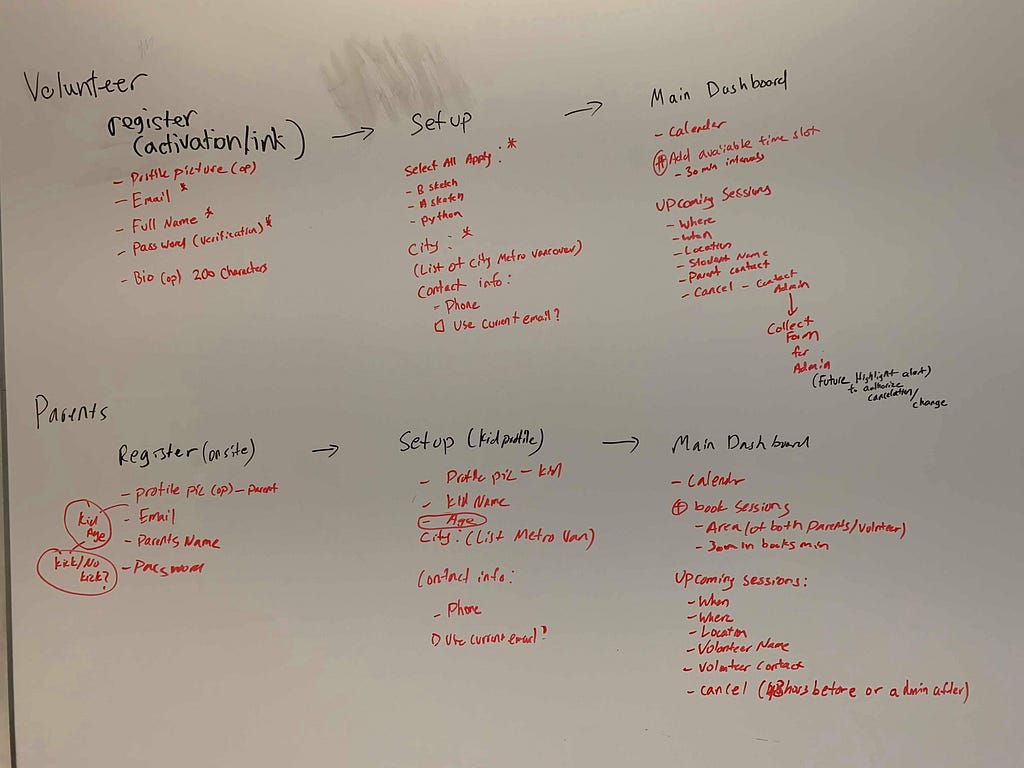 Volunteer
register
(activation/link)
- Profile picture (op)
- Email *
- Full Name *
- Password (verification)*
- Bio (op) 200 characters
→
Setup
Select All Apply : *
- B sketch
- A sketch
- Python
City : *
(List of City Metro Vancouver)
Contact info :
- Phone
□ Use current email?
→
Main Dashboard
- Calender
⊕ Add available time slot
- 30 min intervals
UPcoming Sessions
- Where
- When
- Location
- Student Name
- Parent contact
- Cancel - contact
Admin
↓
Collect
Form
for
Admin
(Future Highlight alert)
to authorize
cancelation/
change
Parents
Register (onsite)
- profile pic (op) - parent
- Email
- Parents Name
- Password
kid
Age
kick/No
kick?
→
Setup (kid profile)
- Profile pic - kid
- kid Name
- Age
City : (List Metro Van)
Contact info :
- Phone
□ Use current email?
→
Main Dashboard
- Calender
⊕ book sessions
- Area (of both Parents/Volnteer)
- 30min books min
Upcoming sessions :
- When
- Where
- Location
- Volunteer Name
- Volunteer Contact
- cancel (48hors before or admin after)